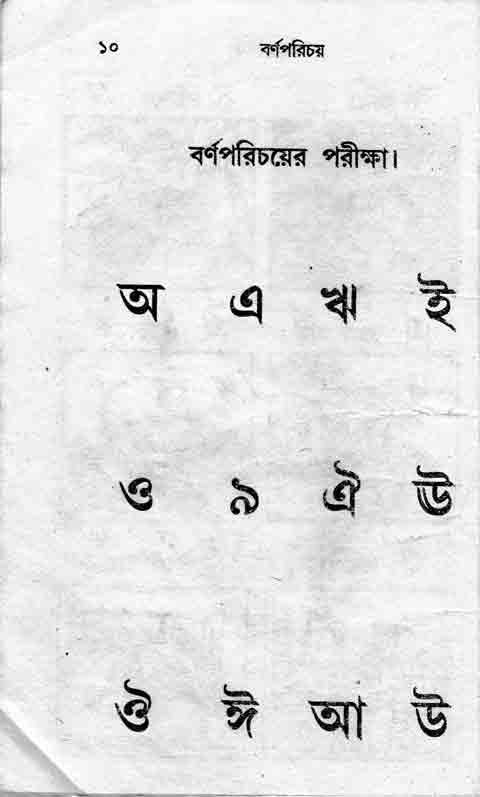 ১০ বর্ণপরিচয়
বর্ণপরিচয়ের পরীক্ষা।
অ এ ঋ ই
ও ঌ ঐ ঊ
ঔ ঈ আ উ